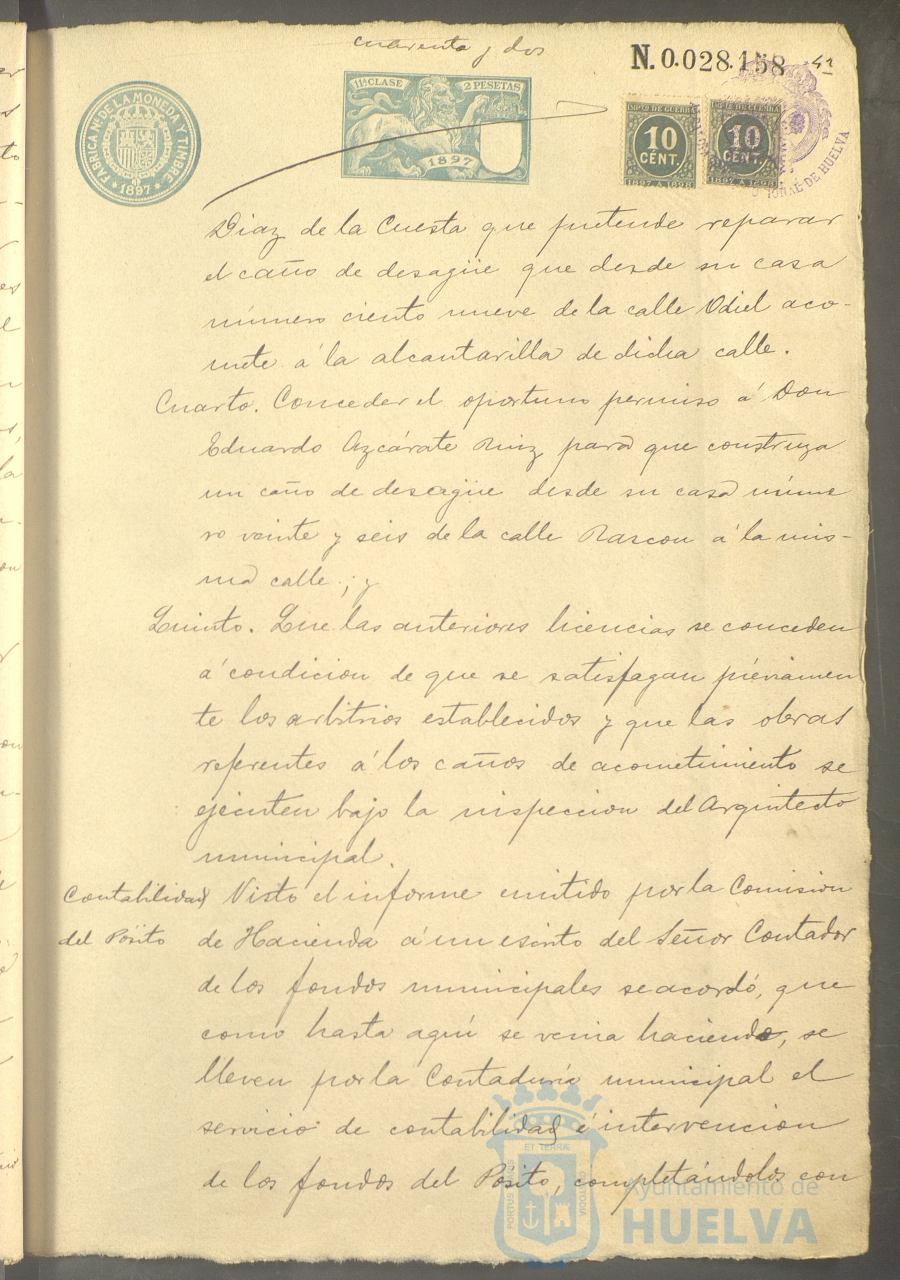 cuarenta y dos
N.0.028.158
42
FABRICA NL DE LA MONEDA Y TIMBRE
1897
11ª CLASE
2 PESETAS
1897
IMPTO DE GUERRA
10
CÉNT.
1897 A 1898
IMPTO DE GUERRA
10
CÉNT.
1897 A 1898
DE HUELVA
Diaz de la Cuesta que pretende reparar
el caño de desagüe que desde su casa
número ciento nueve de la calle Odiel aco-
mete á la alcantarilla de dicha calle.
Cuarto. Conceder el oportuno permiso á Don
Eduardo Azcárate Ruiz para que construya
un caño de desagüe desde su casa núme
ro veinte y seis de la calle Rascon á la mis-
ma calle; y
Quinto. Que las anteriores licencias se conceden
á condicion de que se satisfagan préviamen
te los arbitrios establecidos y que las obras
referentes á los caños de acometimiento se
ejecuten bajo la inspeccion del Arquitecto
municipal.
Contabilidad
del Pósito
Visto el informe emitido por la Comision
de Hacienda á un escrito del Señor Contador
de los fondos municipales se acordó, que
como hasta aqui se venia haciendo, se
lleven por la Contaduría municipal el
servicio de contabilidad é intervencion
de los fondos del Pósito, completándolos con
ET TERRÆ
PORTUS MARIS
CUSTODIA
Ayuntamiento de
HUELVA